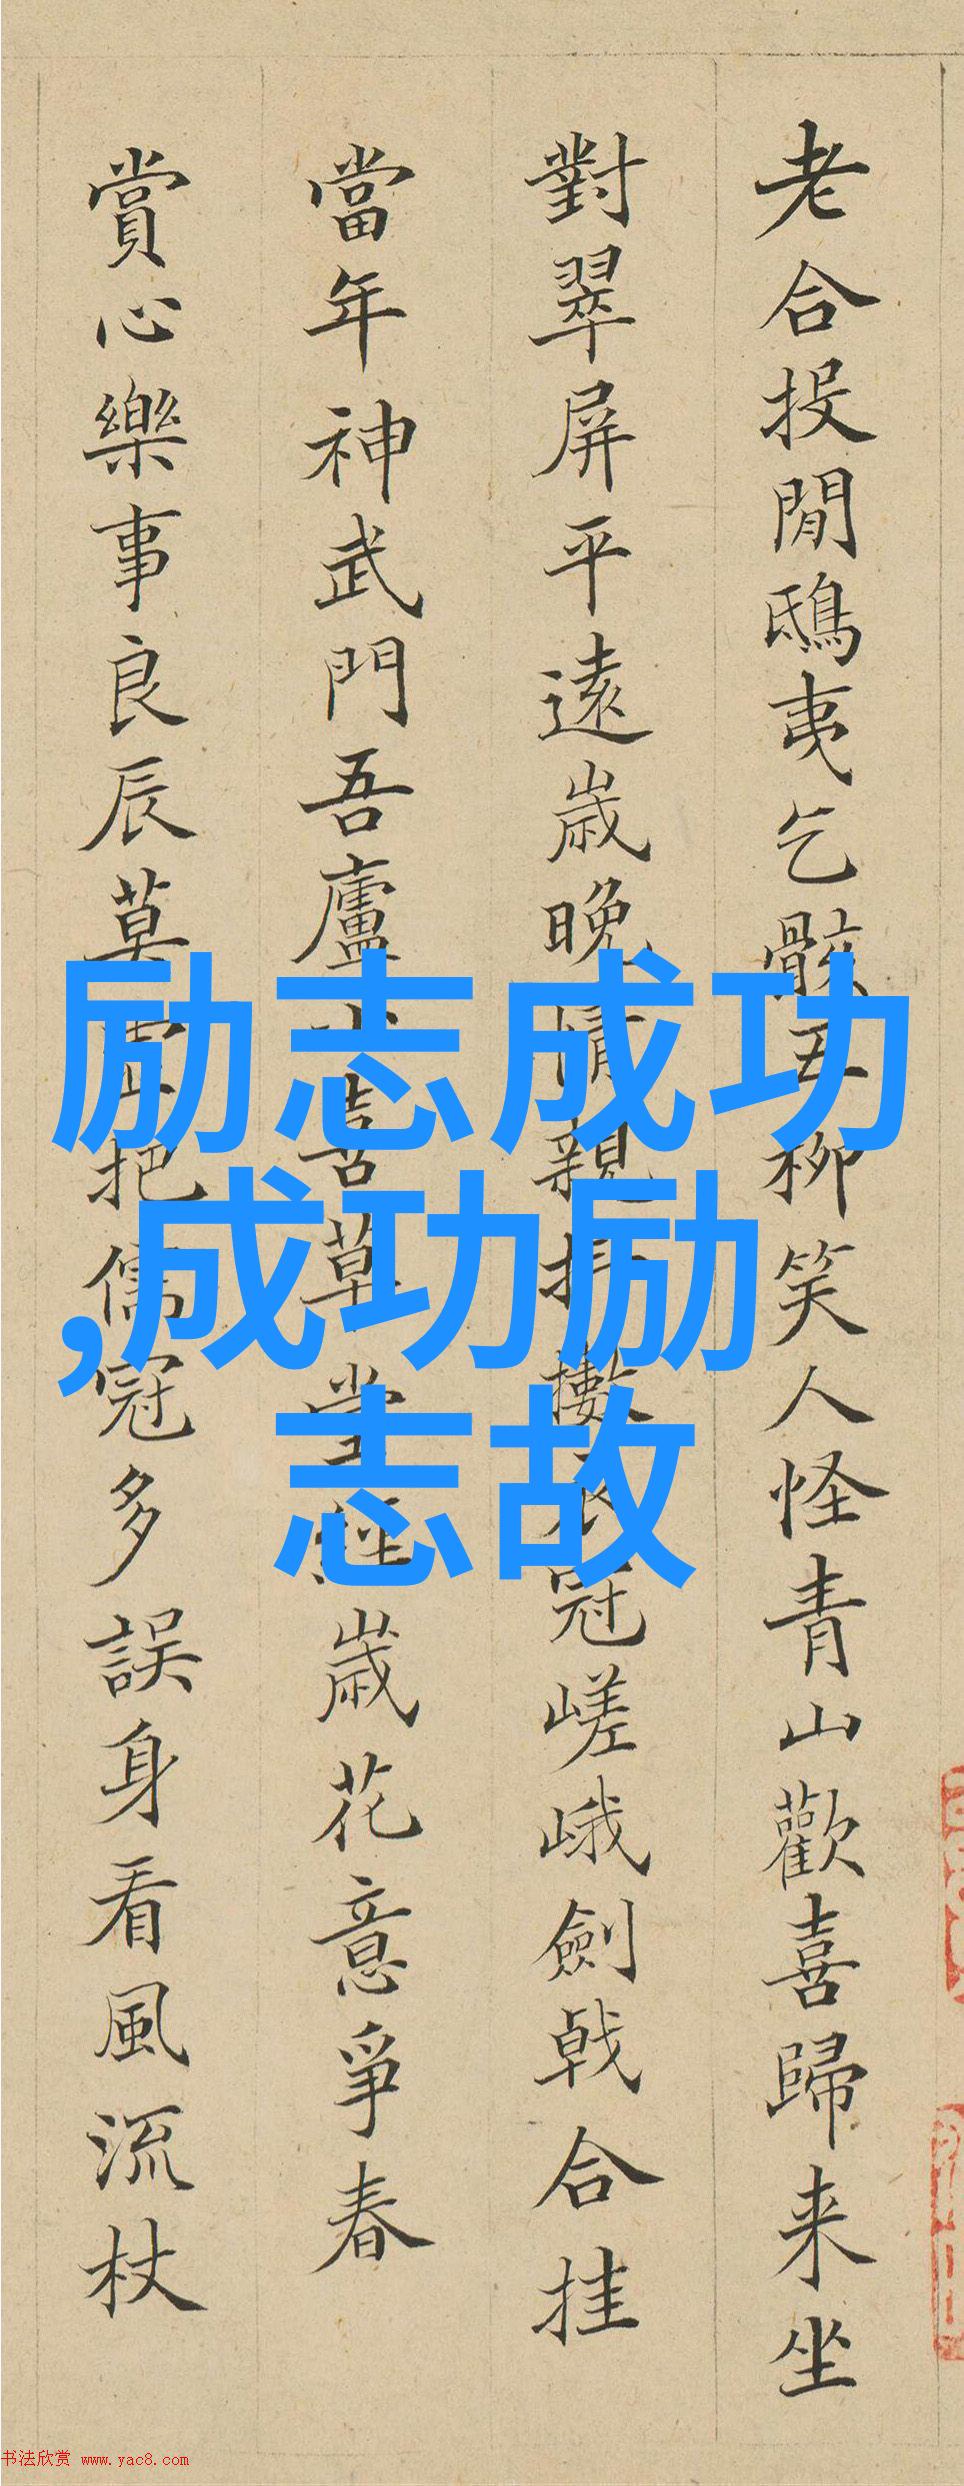 老合投閒鴟夷乞骸五柳笑人怪青山歡喜歸来坐
對翠屏平遠歲晚情親抖擻衣冠嵯峨劍戟合挂
當年神武門吾廬小喜草堂經歲花意爭春
賞心樂事良辰莫把儒冠多誤身看風流杖
励志成功
,成功励
志故
书法欣赏 www.yac8.com